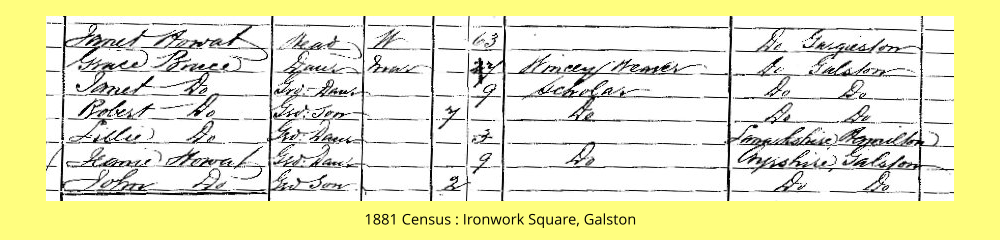 Janet Howat Head W 63 Do Gargieston
Grace Bruce Daur Wincey Weaver Do Galston
Janet Do Grd-Daur 9 Scholar Do Do
Robert Do Grd-Son 7 Do Do Do
Lillie Do Grd-Daur 3 Lanarkshire Hamilton
Jeanie Howat Grd-Daur 9 Do Ayrshire, Galston
John Do Grd Son 2 Do Do
1881 Census : Ironwork Square, Galston